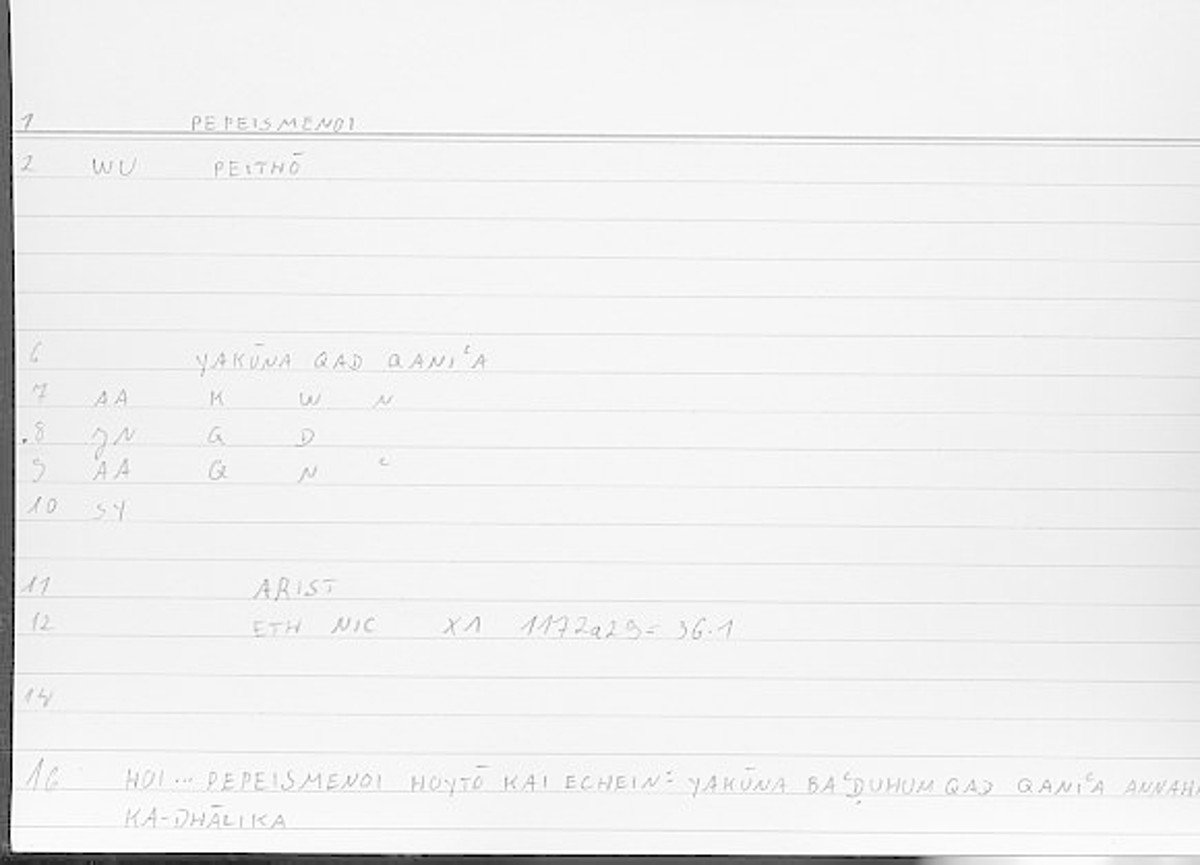 1 PEPEISMENOI
2 WU PEITHŌ
6 YAKŪNA QAD QANIʿA
7 AA K W N
.8 JN Q D
9 AA Q N ʿ
10 SY
11 ARIST
12 ETH NIC X1 1172a29= 36.1
14
16 HOI... PEPEISMENOI HOYTŌ KAI ECHEIN: YAKŪNA BAʿḌUHUM QAD QANIʿA ANNAH
KA-DHĀLIKA